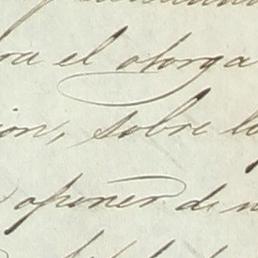 ra el otorga
ion, sobre la
oponer de n